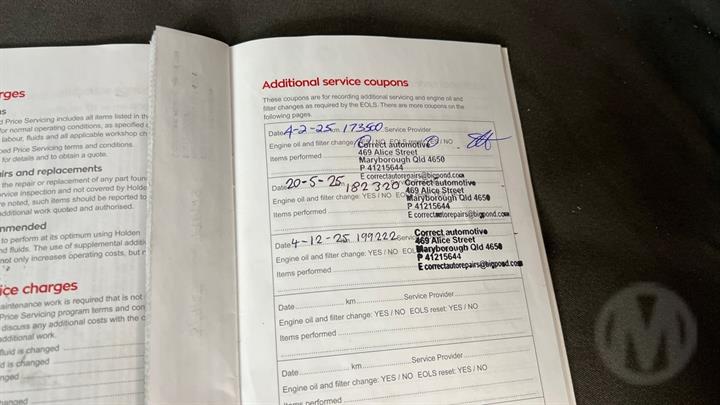 rges
ns
ed Price Servicing includes all items listed in th
for normal operating conditions, as specified
labour, fluids and all applicable workshop ch
ped Price Servicing terms and conditions.
for details and to obtain a quote.
irs and replacements
the repair or replacement of any part foun
rvice inspection and not covered by Holde
re noted, such items should be reported to
additional work quoted and authorised.
mmended
to perform at its optimum using Holden
nd fluids. The use of supplemental additi
not only increases operating costs, but r
ice charges
aintenance work is required that is not
Price Servicing program terms and con
discuss any additional costs with the c
additional work.
fluid is changed
d is changed
nged
hanged
Additional service coupons
These coupons are for recording additional servicing and engine oil and
filter changes as required by the EOLS. There are more coupons on the
following pages.
Date 4-2-25 km 173500 Service Provider
Engine oil and filter change: YES / NO EOLS reset: YES / NO
Items performed
Correct automotive
469 Alice Street
Maryborough Qld 4650
P 41215644
E correctautorepairs@bigpond.com
Date 20-5-25 182320
Engine oil and filter change: YES / NO EOLS
Items performed
Correct automotive
469 Alice Street
Maryborough Qld 4650
P 41215644
E correctautorepairs@bigpond.com
Date 4-12-25 199222 Service
Engine oil and filter change: YES / NO EOLS
Items performed
Correct automotive
469 Alice Street
Maryborough Qld 4650
P 41215644
E correctautorepairs@bigpond.com
Date km Service Provider
Engine oil and filter change: YES / NO EOLS reset: YES / NO
Items performed
Date km Service Provider
Engine oil and filter change: YES / NO EOLS reset: YES / NO
Items performed
M